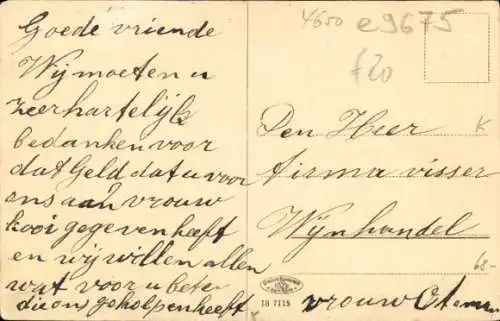 Goede vriende
Wij moeten u
zeer hartelijk
bedanken voor
dat Geld dat u voor
ons aan vrouw
kooi gegeven heeft
en wij willen allen
wat voor u beter
die ons geholpen heeft
4650 e9675
f20
K
Den Heer
firma visser
Wijnhandel
68-
18 7115
vrouw